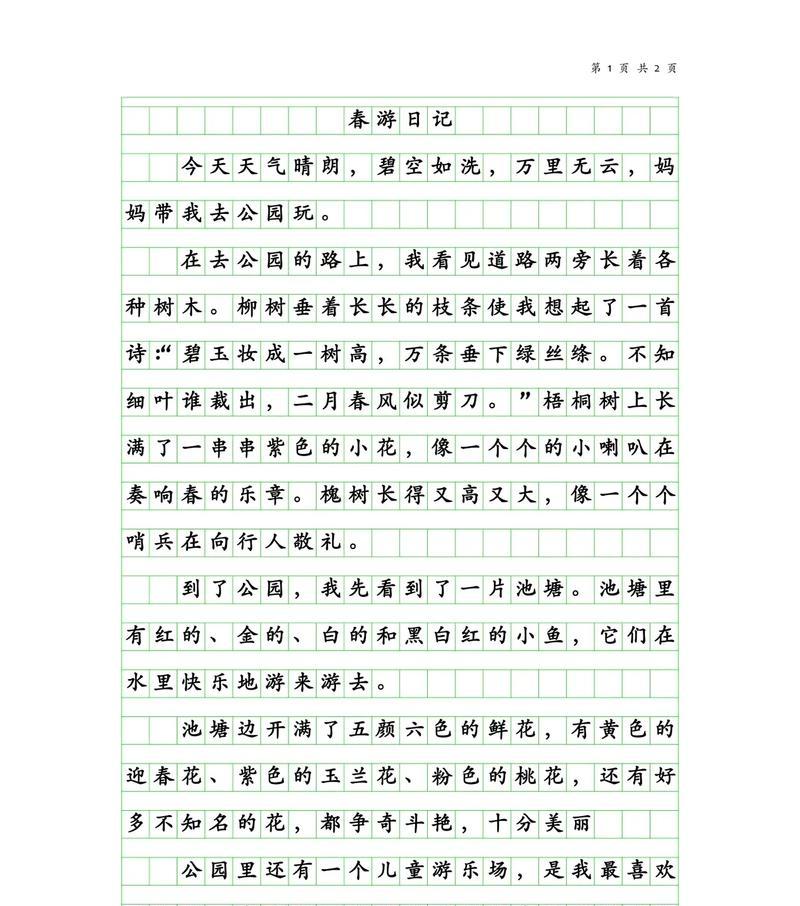 第 1 页 共 2 页
春游日记
今天天气晴朗，碧空如洗，万里无云，妈
妈带我去公园玩。
在去公园的路上，我看见道路两旁长着各
种树木。柳树垂着长长的枝条使我想起了一首
诗：“碧玉妆成一树高，万条垂下绿丝绦。不知
细叶谁裁出，二月春风似剪刀。”梧桐树上长
满了一串串紫色的小花，像一个个的小喇叭在
奏响春的乐章。槐树长得又高又大，像一个个
哨兵在向行人敬礼。
到了公园，我先看到了一片池塘。池塘里
有红的、金的、白的和黑白红的小鱼，它们在
水里快乐地游来游去。
池塘边开满了五颜六色的鲜花，有黄色的
迎春花、紫色的玉兰花、粉色的桃花，还有好
多不知名的花，都争奇斗艳，十分美丽
公园里还有一个儿童游乐场，是我最喜欢